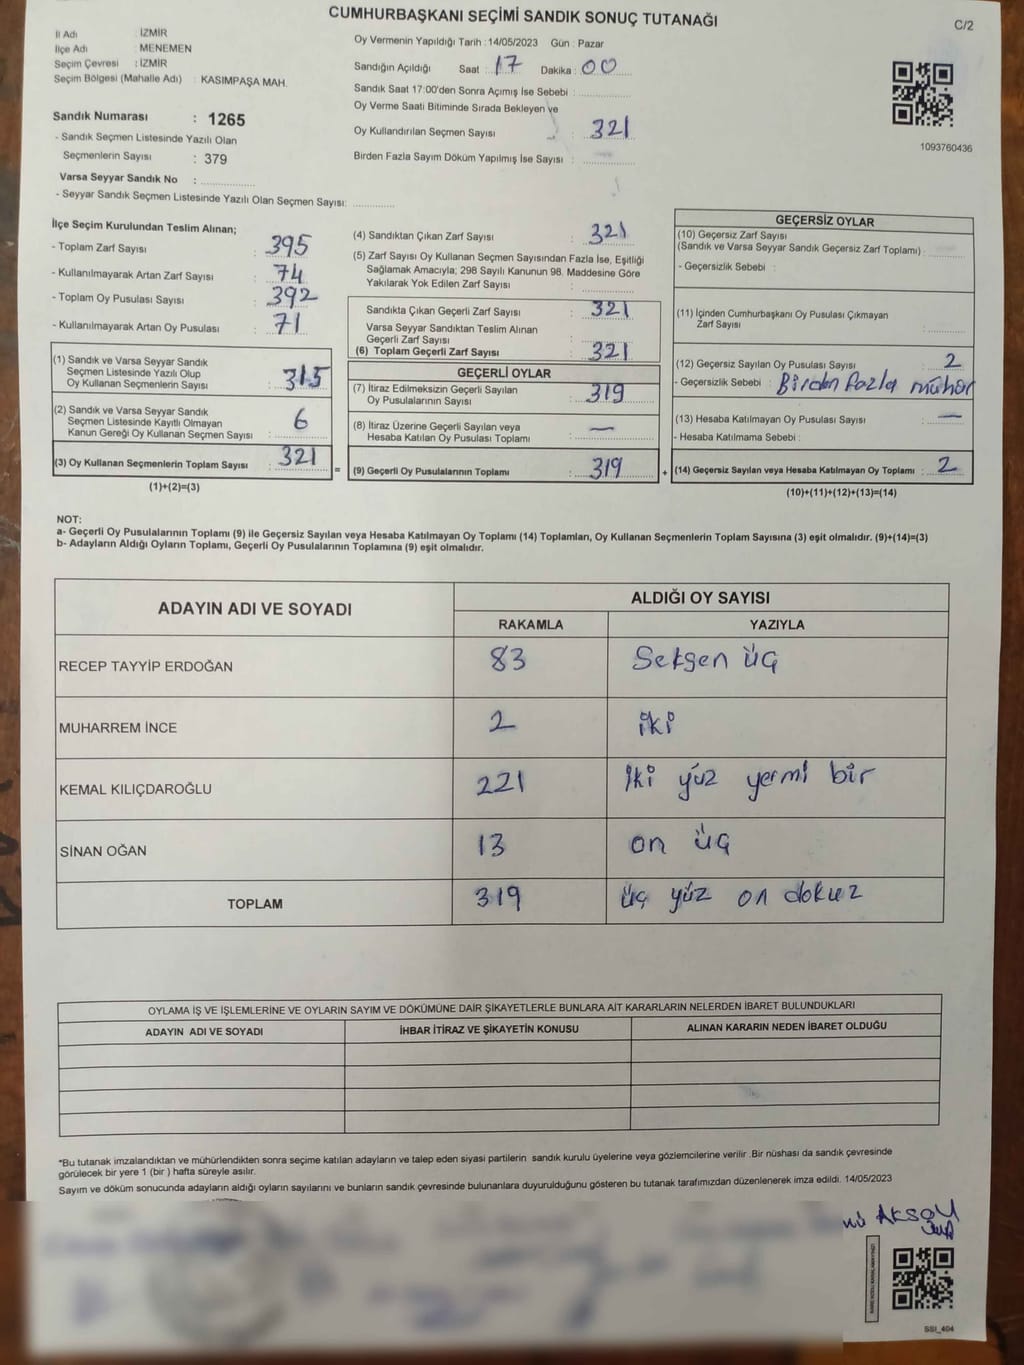 CUMHURBAŞKANI SEÇİMİ SANDIK SONUÇ TUTANAĞI
C/2
İl Adı : İZMİR
İlçe Adı : MENEMEN
Seçim Çevresi : İZMİR
Seçim Bölgesi (Mahalle Adı) : KASIMPAŞA MAH.
Sandık Numarası : 1265
- Sandık Seçmen Listesinde Yazılı Olan
Seçmenlerin Sayısı : 379
Varsa Seyyar Sandık No :
- Seyyar Sandık Seçmen Listesinde Yazılı Olan Seçmen Sayısı:
Oy Vermenin Yapıldığı Tarih : 14/05/2023 Gün : Pazar
Sandığın Açıldığı Saat : 17 Dakika : 00
Sandık Saat 17:00'den Sonra Açımış İse Sebebi :
Oy Verme Saati Bitiminde Sırada Bekleyen ve
Oy Kullandırılan Seçmen Sayısı : 321
Birden Fazla Sayım Döküm Yapılmış İse Sayısı : —
1093760436
İlçe Seçim Kurulundan Teslim Alınan;
- Toplam Zarf Sayısı : 395
- Kullanılmayarak Artan Zarf Sayısı : 74
- Toplam Oy Pusulası Sayısı : 392
- Kullanılmayarak Artan Oy Pusulası : 71
(1) Sandık ve Varsa Seyyar Sandık
Seçmen Listesinde Yazılı Olup
Oy Kullanan Seçmenlerin Sayısı : 315
(2) Sandık ve Varsa Seyyar Sandık
Seçmen Listesinde Kayıtlı Olmayan
Kanun Gereği Oy Kullanan Seçmen Sayısı : 6
(3) Oy Kullanan Seçmenlerin Toplam Sayısı : 321
(1)+(2)=(3)
=
(4) Sandıktan Çıkan Zarf Sayısı : 321
(5) Zarf Sayısı Oy Kullanan Seçmen Sayısından Fazla İse, Eşitliği
Sağlamak Amacıyla; 298 Sayılı Kanunun 98. Maddesine Göre
Yakılarak Yok Edilen Zarf Sayısı :
Sandıkta Çıkan Geçerli Zarf Sayısı : 321
Varsa Seyyar Sandıktan Teslim Alınan
Geçerli Zarf Sayısı :
(6) Toplam Geçerli Zarf Sayısı : 321
GEÇERLİ OYLAR
(7) İtiraz Edilmeksizin Geçerli Sayılan
Oy Pusulalarının Sayısı : 319
(8) İtiraz Üzerine Geçerli Sayılan veya
Hesaba Katılan Oy Pusulası Toplamı : —
(9) Geçerli Oy Pusulalarının Toplamı : 319
+
GEÇERSİZ OYLAR
(10) Geçersiz Zarf Sayısı
(Sandık ve Varsa Seyyar Sandık Geçersiz Zarf Toplamı) :
- Geçersizlik Sebebi :
(11) İçinden Cumhurbaşkanı Oy Pusulası Çıkmayan
Zarf Sayısı :
(12) Geçersiz Sayılan Oy Pusulası Sayısı : 2
- Geçersizlik Sebebi : Birden fazla mühür
(13) Hesaba Katılmayan Oy Pusulası Sayısı : —
- Hesaba Katılmama Sebebi :
(14) Geçersiz Sayılan veya Hesaba Katılmayan Oy Toplamı : 2
(10)+(11)+(12)+(13)=(14)
NOT:
a- Geçerli Oy Pusulalarının Toplamı (9) ile Geçersiz Sayılan veya Hesaba Katılmayan Oy Toplamı (14) Toplamları, Oy Kullanan Seçmenlerin Toplam Sayısına (3) eşit olmalıdır. (9)+(14)=(3)
b- Adayların Aldığı Oyların Toplamı, Geçerli Oy Pusulalarının Toplamına (9) eşit olmalıdır.
ADAYIN ADI VE SOYADI
ALDIĞI OY SAYISI
RAKAMLA YAZIYLA
RECEP TAYYİP ERDOĞAN 83 Seksen üç
MUHARREM İNCE 2 iki
KEMAL KILIÇDAROĞLU 221 iki yüz yermi bir
SİNAN OĞAN 13 on üç
TOPLAM 319 üç yüz on dokuz
OYLAMA İŞ VE İŞLEMLERİNE VE OYLARIN SAYIM VE DÖKÜMÜNE DAİR ŞİKAYETLERLE BUNLARA AİT KARARLARIN NELERDEN İBARET BULUNDUKLARI
ADAYIN ADI VE SOYADI İHBAR İTİRAZ VE ŞİKAYETİN KONUSU ALINAN KARARIN NEDEN İBARET OLDUĞU
*Bu tutanak imzalandıktan ve mühürlendikten sonra seçime katılan adayların ve talep eden siyasi partilerin sandık kurulu üyelerine veya gözlemcilerine verilir .Bir nüshası da sandık çevresinde
görülecek bir yere 1 (bir ) hafta süreyle asılır.
Sayım ve döküm sonucunda adayların aldığı oyların sayılarını ve bunların sandık çevresinde bulunanlara duyurulduğunu gösteren bu tutanak tarafımızdan düzenlenerek imza edildi. 14/05/2023
AKSOY
SSI_404